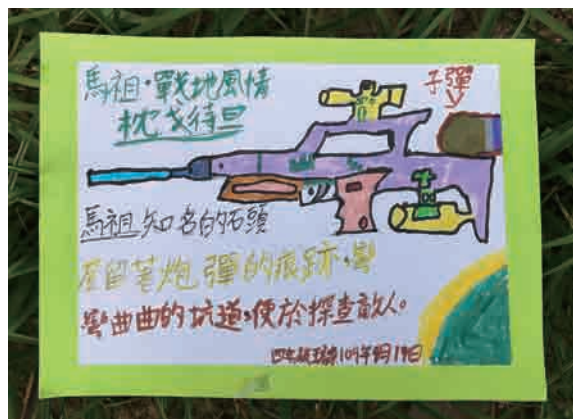 馬祖·戰地風情
枕戈待旦
子彈
馬祖知名的石頭
留著炮彈的痕跡,彎
彎曲曲的坑道,便於探查敵人。
109年 月19日